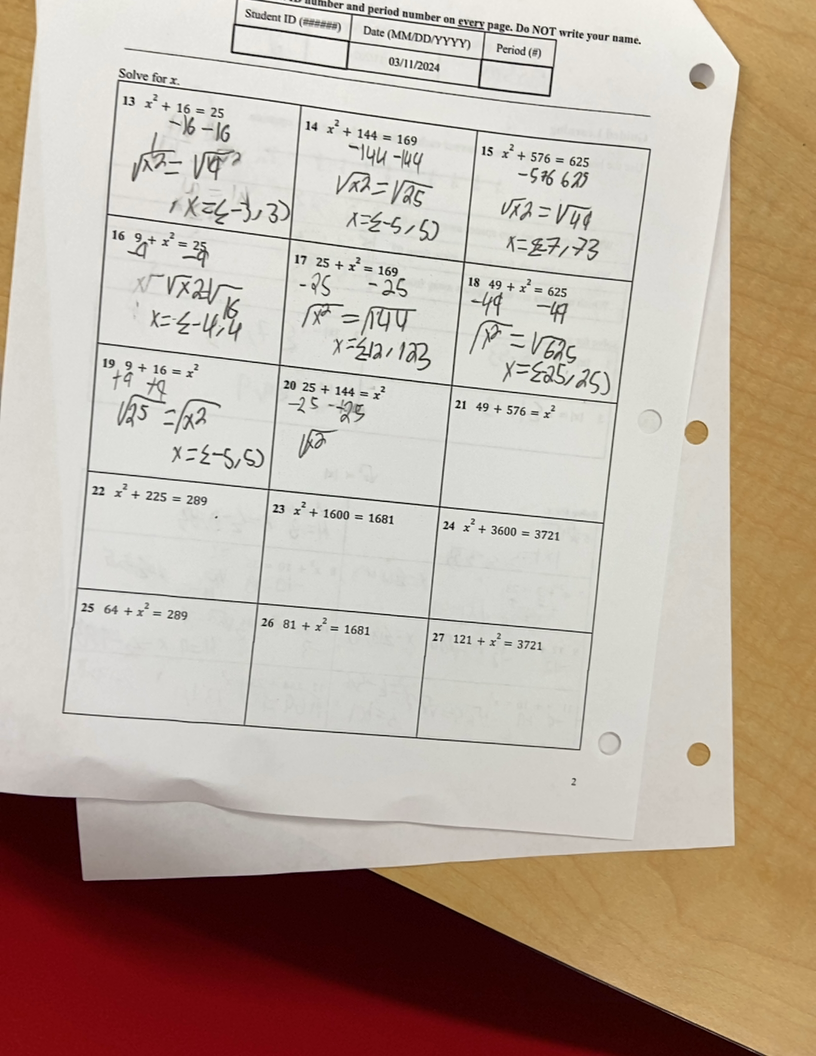 number and period number on every page. Do NOT write your name.
Student ID (######)
Date (MM/DD/YYYY)
Period (#)
03/11/2024
Solve for x.
13 x² + 16 = 25
-16 -16
√x2 = √9
x={-3,3}
14 x² + 144 = 169
-144 -144
√x2 = √25
x={-5,5}
15 x² + 576 = 625
-576 625
√x2 = √49
x={-7,7}
16 9 + x² = 25
-9 -9
√x2 √16
x={-4,4
17 25 + x² = 169
-25 -25
√x² = √144
x={12,12}
18 49 + x² = 625
-49 -49
√x² = √625
x={25,25}
19 9 + 16 = x²
+9 +9
√25 = √x2
x={-5,5}
20 25 + 144 = x²
-25 -25
√x2
21 49 + 576 = x²
22 x² + 225 = 289
23 x² + 1600 = 1681
24 x² + 3600 = 3721
25 64 + x² = 289
26 81 + x² = 1681
27 121 + x² = 3721
2